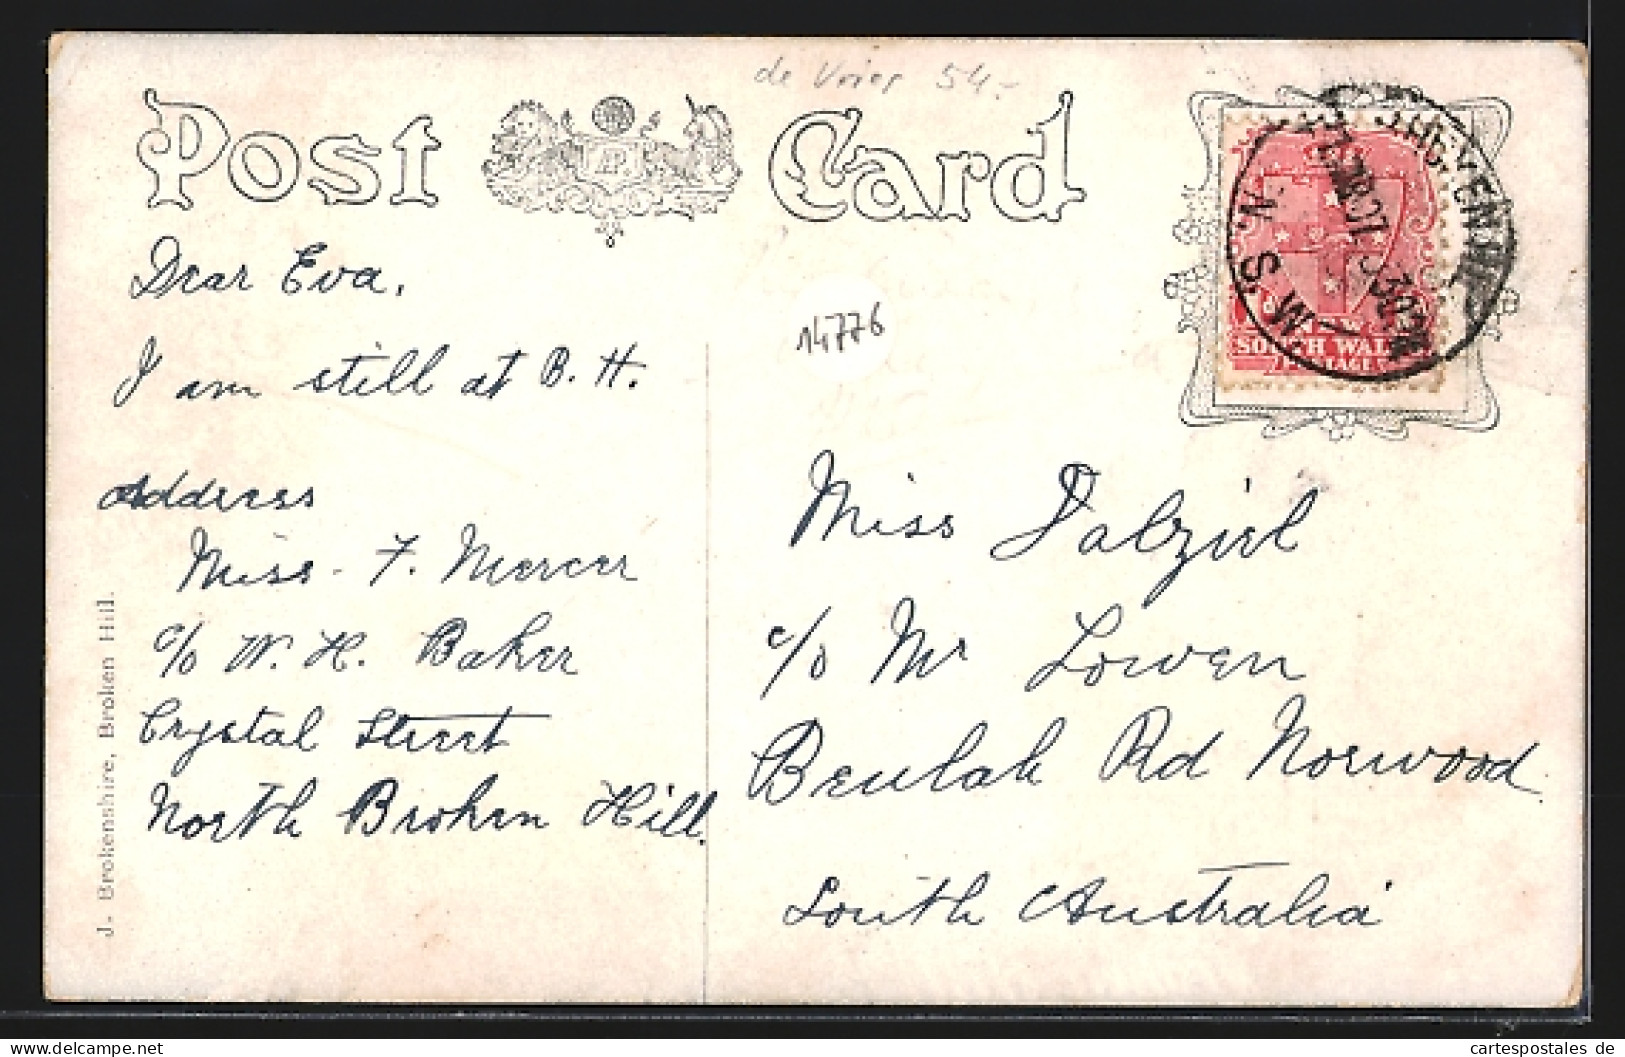 de Vries 54.-
Post Card
AP.
Dear Eva,
I am still at B. H.
Address
Miss. F. Mercer
c/o W. H. Baker
Crystal Street
North Broken Hill.
J. Brokenshire, Broken Hill.
14776
N. S. W.
SOUTH WALES
POSTAGE
Miss Dalziel
c/o Mr Lowen
Beulah Rd Norwood
South Australia
www.delcampe.net
cartespostales de